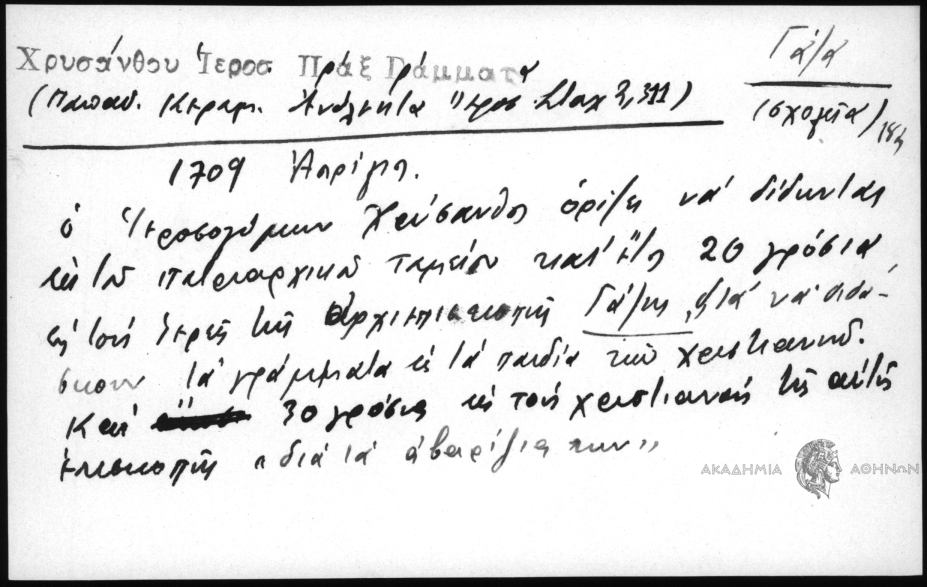 Χρυσάνθου Ἱεροσ Πράξ Γράμματα
Γάζα
(Παπαδ. Κεραμ. Ἀνάλεκτα Ἱεροσ. Σταχ 2, 311)
(σχολεῖα)
1709 Ἀπρίλη.
ὁ Ἱεροσολύμων Χρύσανθος ὁρίζει νά δίδωνται
ἐκ τοῦ πατριαρχικοῦ ταμείου κατ' ἔτος 20 γρόσια
εἰς τούς ἱερεῖς τῆς ἀρχιεπισκοπῆς Γάζης „διά νά διδά-
σκουν τά γράμματα εἰς τά παιδία τῶν χριστιανῶν.
Καί 30 γρόσια εἰς τούς χριστιανούς τῆς αὐτῆς
ἐπισκοπῆς „διά τά ἀβαρίζια των"
ΑΚΑΔΗΜΙΑ ΑΘΗΝΩΝ